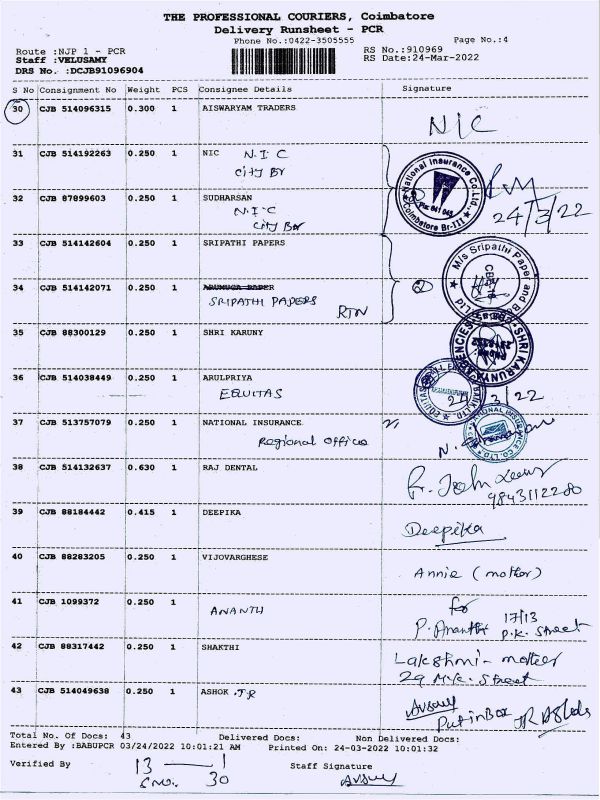 THE PROFESSIONAL COURIERS, Coimbatore
Delivery Runsheet - PCR
Phone No.:0422-3505555 Page No.:4
Route :NJP 1 - PCR RS No.:910969
Staff :VELUSAMY RS Date:24-Mar-2022
DRS No. :DCJB91096904
S No Consignment No Weight PCS Consignee Details Signature
30 CJB 514096315 0.300 1 AISWARYAM TRADERS NIC
31 CJB 514192263 0.250 1 NIC N.I.C
City Br
National Insurance Co.Ltd.,
Coimbatore Br-III
32 CJB 87899603 0.250 1 SUDHARSAN
N.I.C 24/3/22
City Br
33 CJB 514142604 0.250 1 SRIPATHI PAPERS
M/s Sripathi Paper and
34 CJB 514142071 0.250 1
SRIPATHI PAPERS RTN
35 CJB 88300129 0.250 1 SHRI KARUNY
SHRI KARUNYA AGENCIES
36 CJB 514038449 0.250 1 ARULPRIYA
EQUITAS 24/3/22
37 CJB 513757079 0.250 1 NATIONAL INSURANCE
Regional Office
38 CJB 514132637 0.630 1 RAJ DENTAL
John
9843112280
39 CJB 88184442 0.415 1 DEEPIKA
Deepika
40 CJB 88283205 0.250 1 VIJOVARGHESE
Annie (mother)
41 CJB 1099372 0.250 1 for
ANANTH 17/13
P. Ananth P.K. Street
42 CJB 88317442 0.250 1 SHAKTHI
Lakshmi - mother
29 Street
43 CJB 514049638 0.250 1 ASHOK .JR
Put in Box JR
Total No. Of Docs: 43 Delivered Docs: Non Delivered Docs:
Entered By :BABUPCR 03/24/2022 10:01:21 AM Printed On: 24-03-2022 10:01:32
Verified By 13 — 1 Staff Signature
S.No. 30